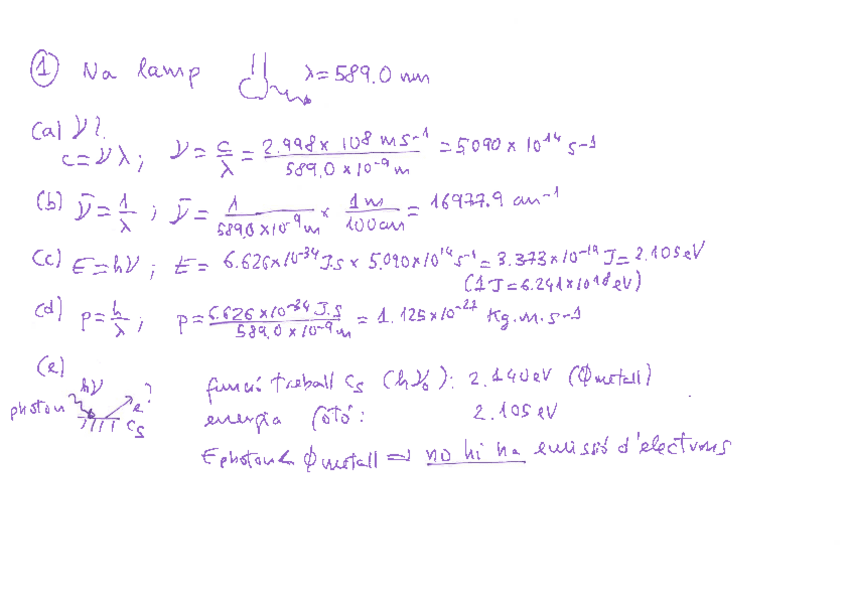 ① Na lamp λ=589.0 nm
(a) ν?
c=νλ; ν = c/λ = 2.998 × 10⁸ m s⁻¹ / 589.0 × 10⁻⁹ m = 5.090 × 10¹⁴ s⁻¹
(b) ν̄ = 1/λ ; ν̄ = 1 / 589.0 × 10⁻⁹ m × 1 m / 100 cm = 16977.9 cm⁻¹
(c) E=hν ; E = 6.626×10⁻³⁴ J.s × 5.090×10¹⁴ s⁻¹ = 3.373×10⁻¹⁹ J = 2.105 eV
(1 J = 6.241×10¹⁸ eV)
(d) p = h/λ ; p = 6.626 ×10⁻³⁴ J.s / 589.0 × 10⁻⁹ m = 1.125×10⁻²⁷ Kg.m.s⁻¹
(e)
hν e⁻?
photon Cs
funció treball Cs (hν₀): 2.140 eV (Φmetall)
energia fotó: 2.105 eV
Ephoton < Φmetall ⇒ no hi ha emissió d'electrons